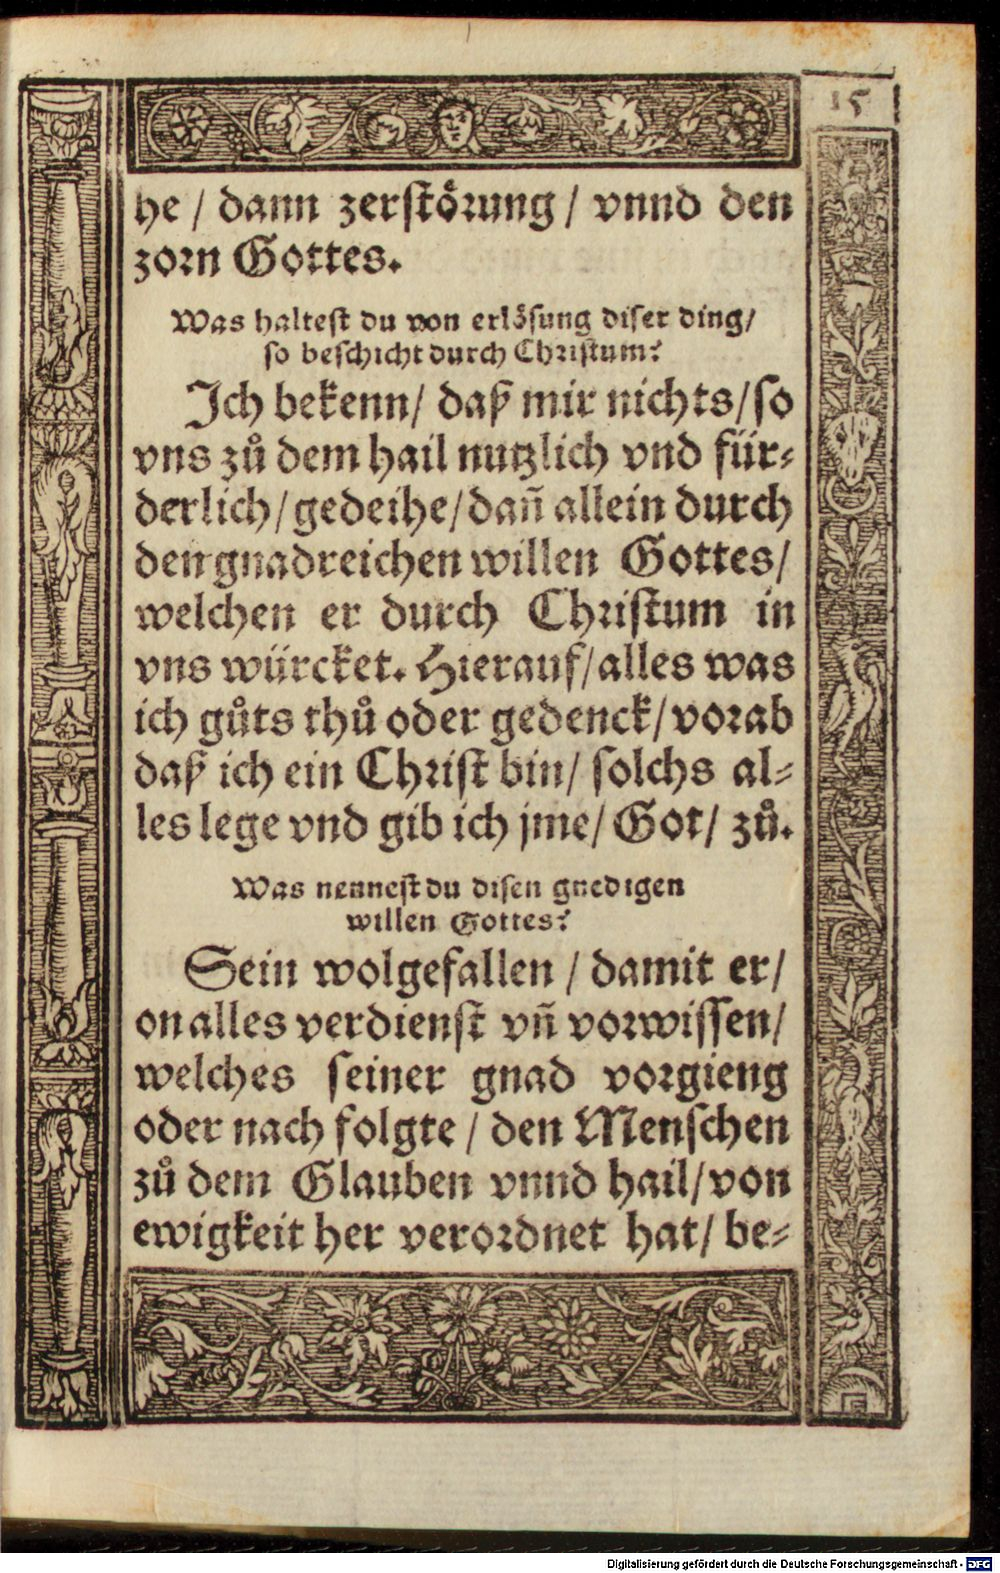 15
he / dann zerstörung / vnnd den
zorn Gottes.
Was haltest du von erlösung diser ding/
so beschicht durch Christum?
Ich bekenn/ daß mir nichts/ so
vns zů dem hail nutzlich vnd für⸗
derlich/ gedeihe/ dañ allein durch
den gnadreichen willen Gottes/
welchen er durch Christum in
vns würcket. Hierauf/ alles was
ich gůts thů oder gedenck/ vorab
daß ich ein Christ bin/ solchs al⸗
les lege vnd gib ich jme/ Got/ zů.
Was nennest du disen gnedigen
willen Gottes?
Sein wolgefallen / damit er/
on alles verdienst vñ vorwissen/
welches seiner gnad vorgieng
oder nach folgte / den Menschen
zů dem Glauben vnnd hail/ von
ewigkeit her verordnet hat/ be⸗
Digitalisierung gefördert durch die Deutsche Forschungsgemeinschaft - DFG